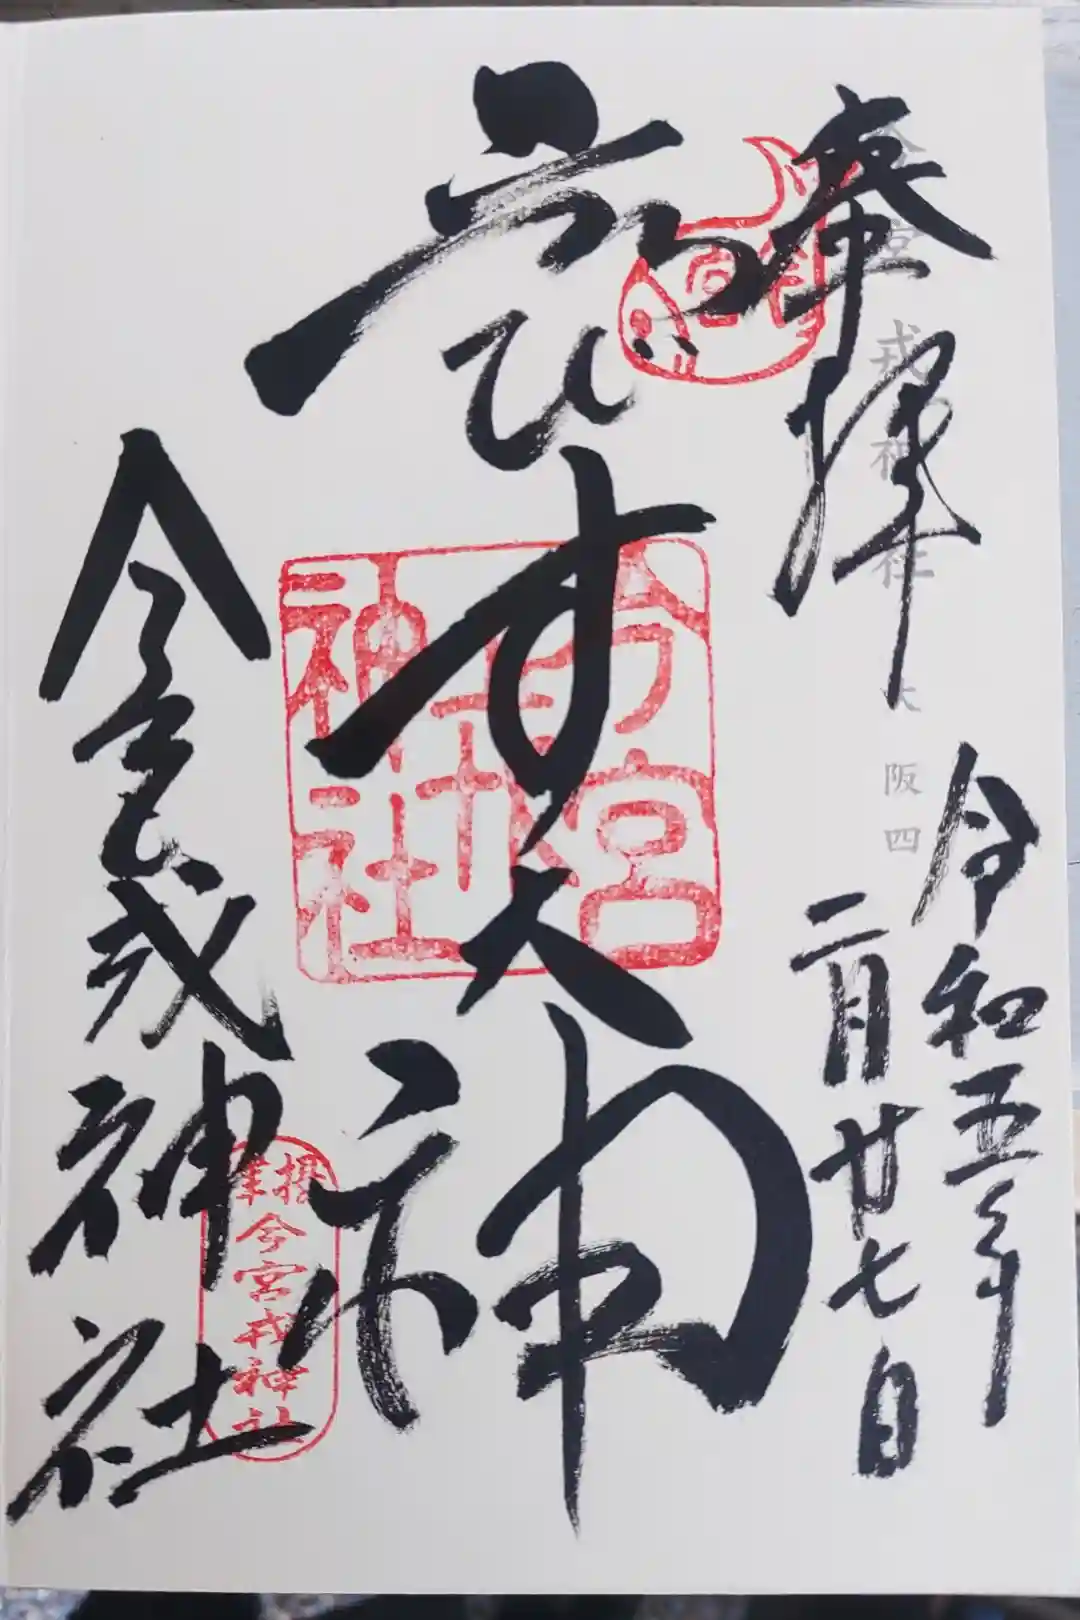 奉拝
今宮戎神社 大阪四
令和五年
二月廿七日
ゑびす大神
今宮戎神社
今宮戎神社
今宮戎神社